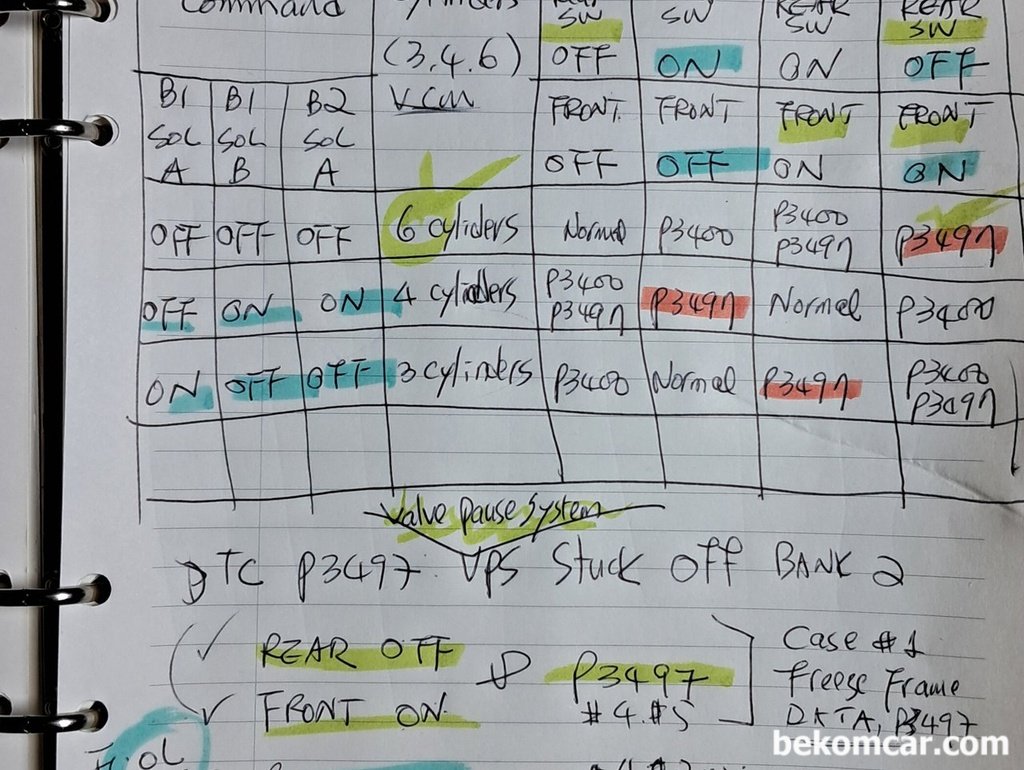 Command
SW SW REAR SW REAR SW
(3,4,6) OFF ON ON OFF
B1 SOL A B1 SOL B B2 SOL A VCM FRONT OFF FRONT OFF FRONT ON FRONT ON
OFF OFF OFF 6 cyliders Normal P3400 P3400 P3497 P3497
OFF ON ON 4 cylinders P3400 P3497 P3497 Normal P3400
ON OFF OFF 3 cylinders P3400 Normal P3497 P3400 P3497
Valve pause system
DTC P3497. VPS Stuck OFF BANK 2
✓ REAR OFF
✓ FRONT ON.
P3497
#4.#5
Case #1
Freeze Frame
DATA, P3497
OL
bekomcar.com